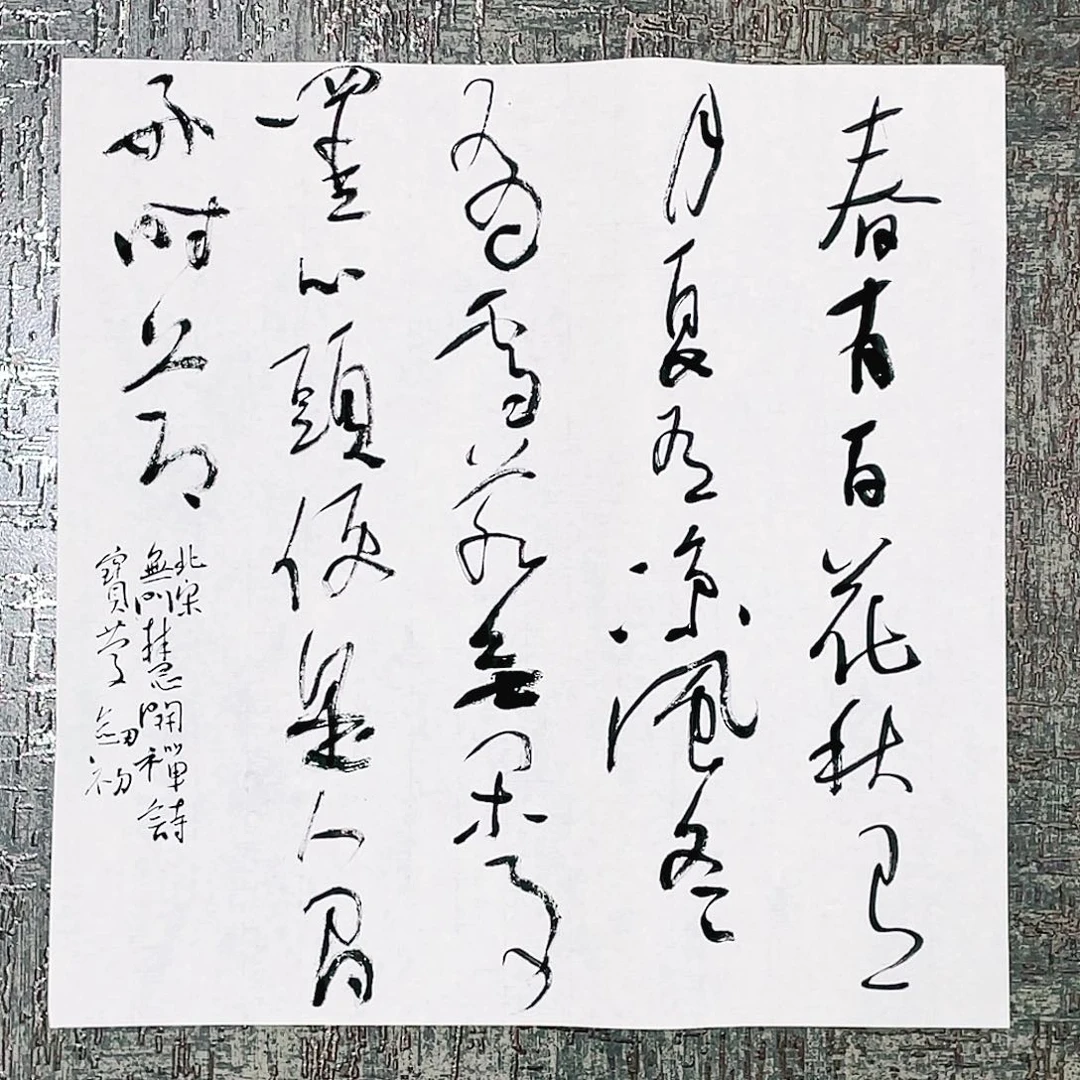 春有百花秋有
月夏有凉風冬
有雪若無閑事
罣心頭便是人間
好時節
北宋
無門慧開禪詩
寶 初